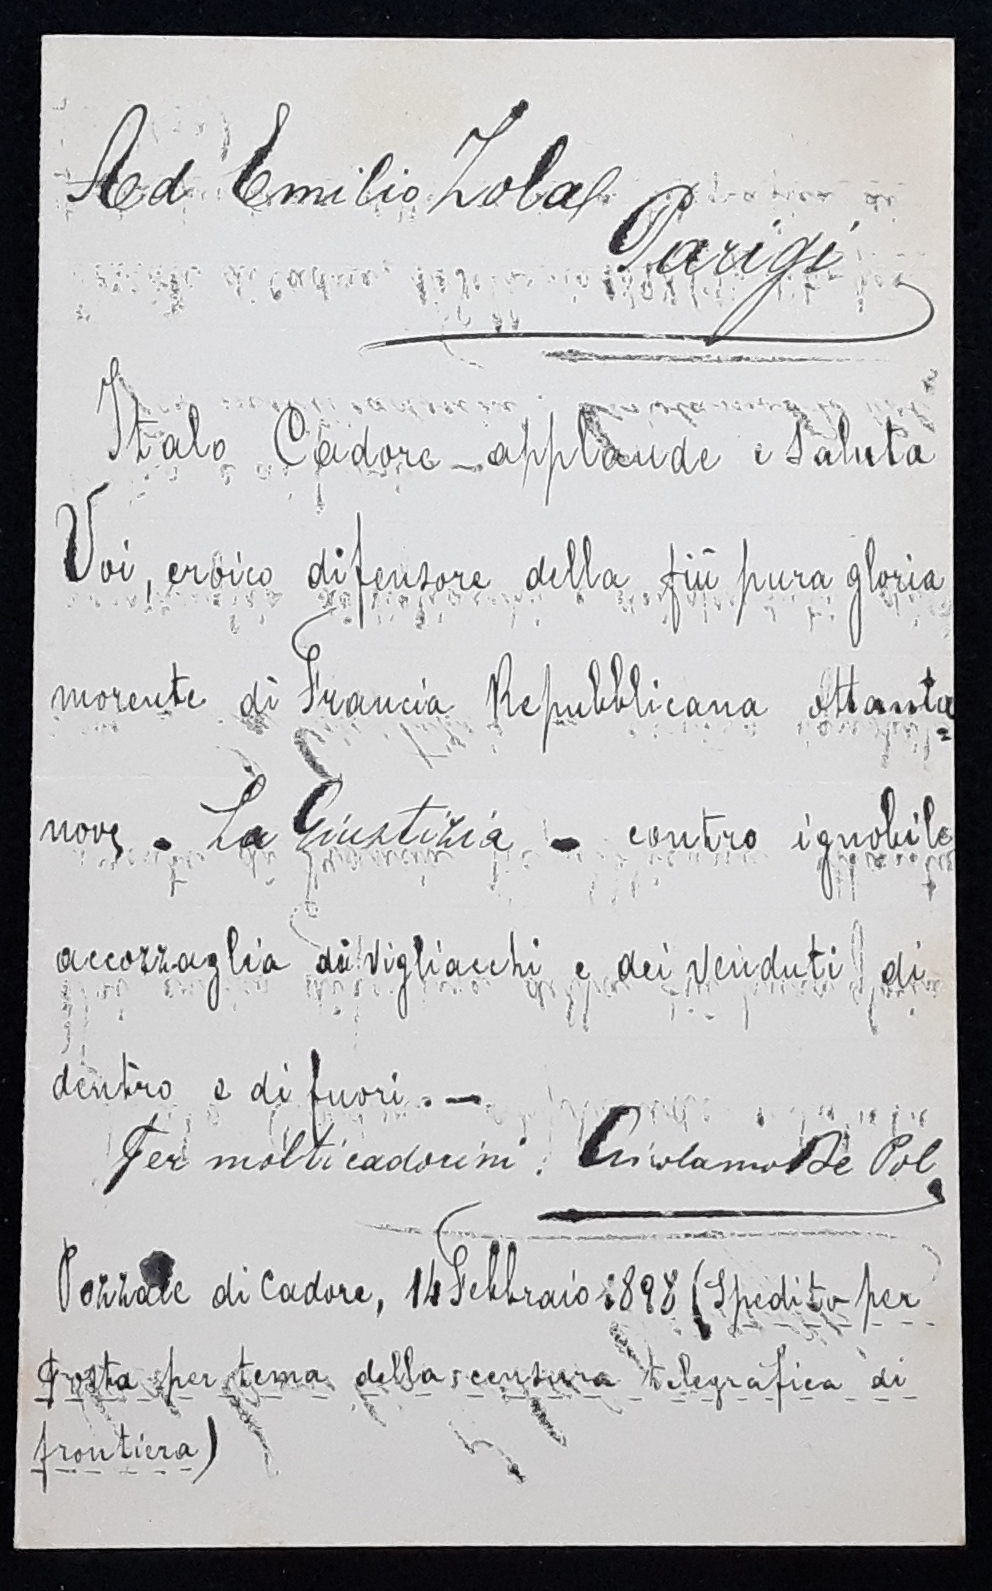 Ad Emilio Zola
Parigi
Italo Cadore applaude e saluta
Voi, eroico difensore della più pura gloria
morente di Francia Repubblicana ottanta=
nove - La Giustizia - contro ignobile
accozzaglia di vigliacchi e dei venduti di
dentro e di fuori. -
Per molti cadorini. Girolamo De Pol
Pozzale di Cadore, 14 Febbraio 1898 (Spedito per
posta per tema della censura telegrafica di
frontiera)